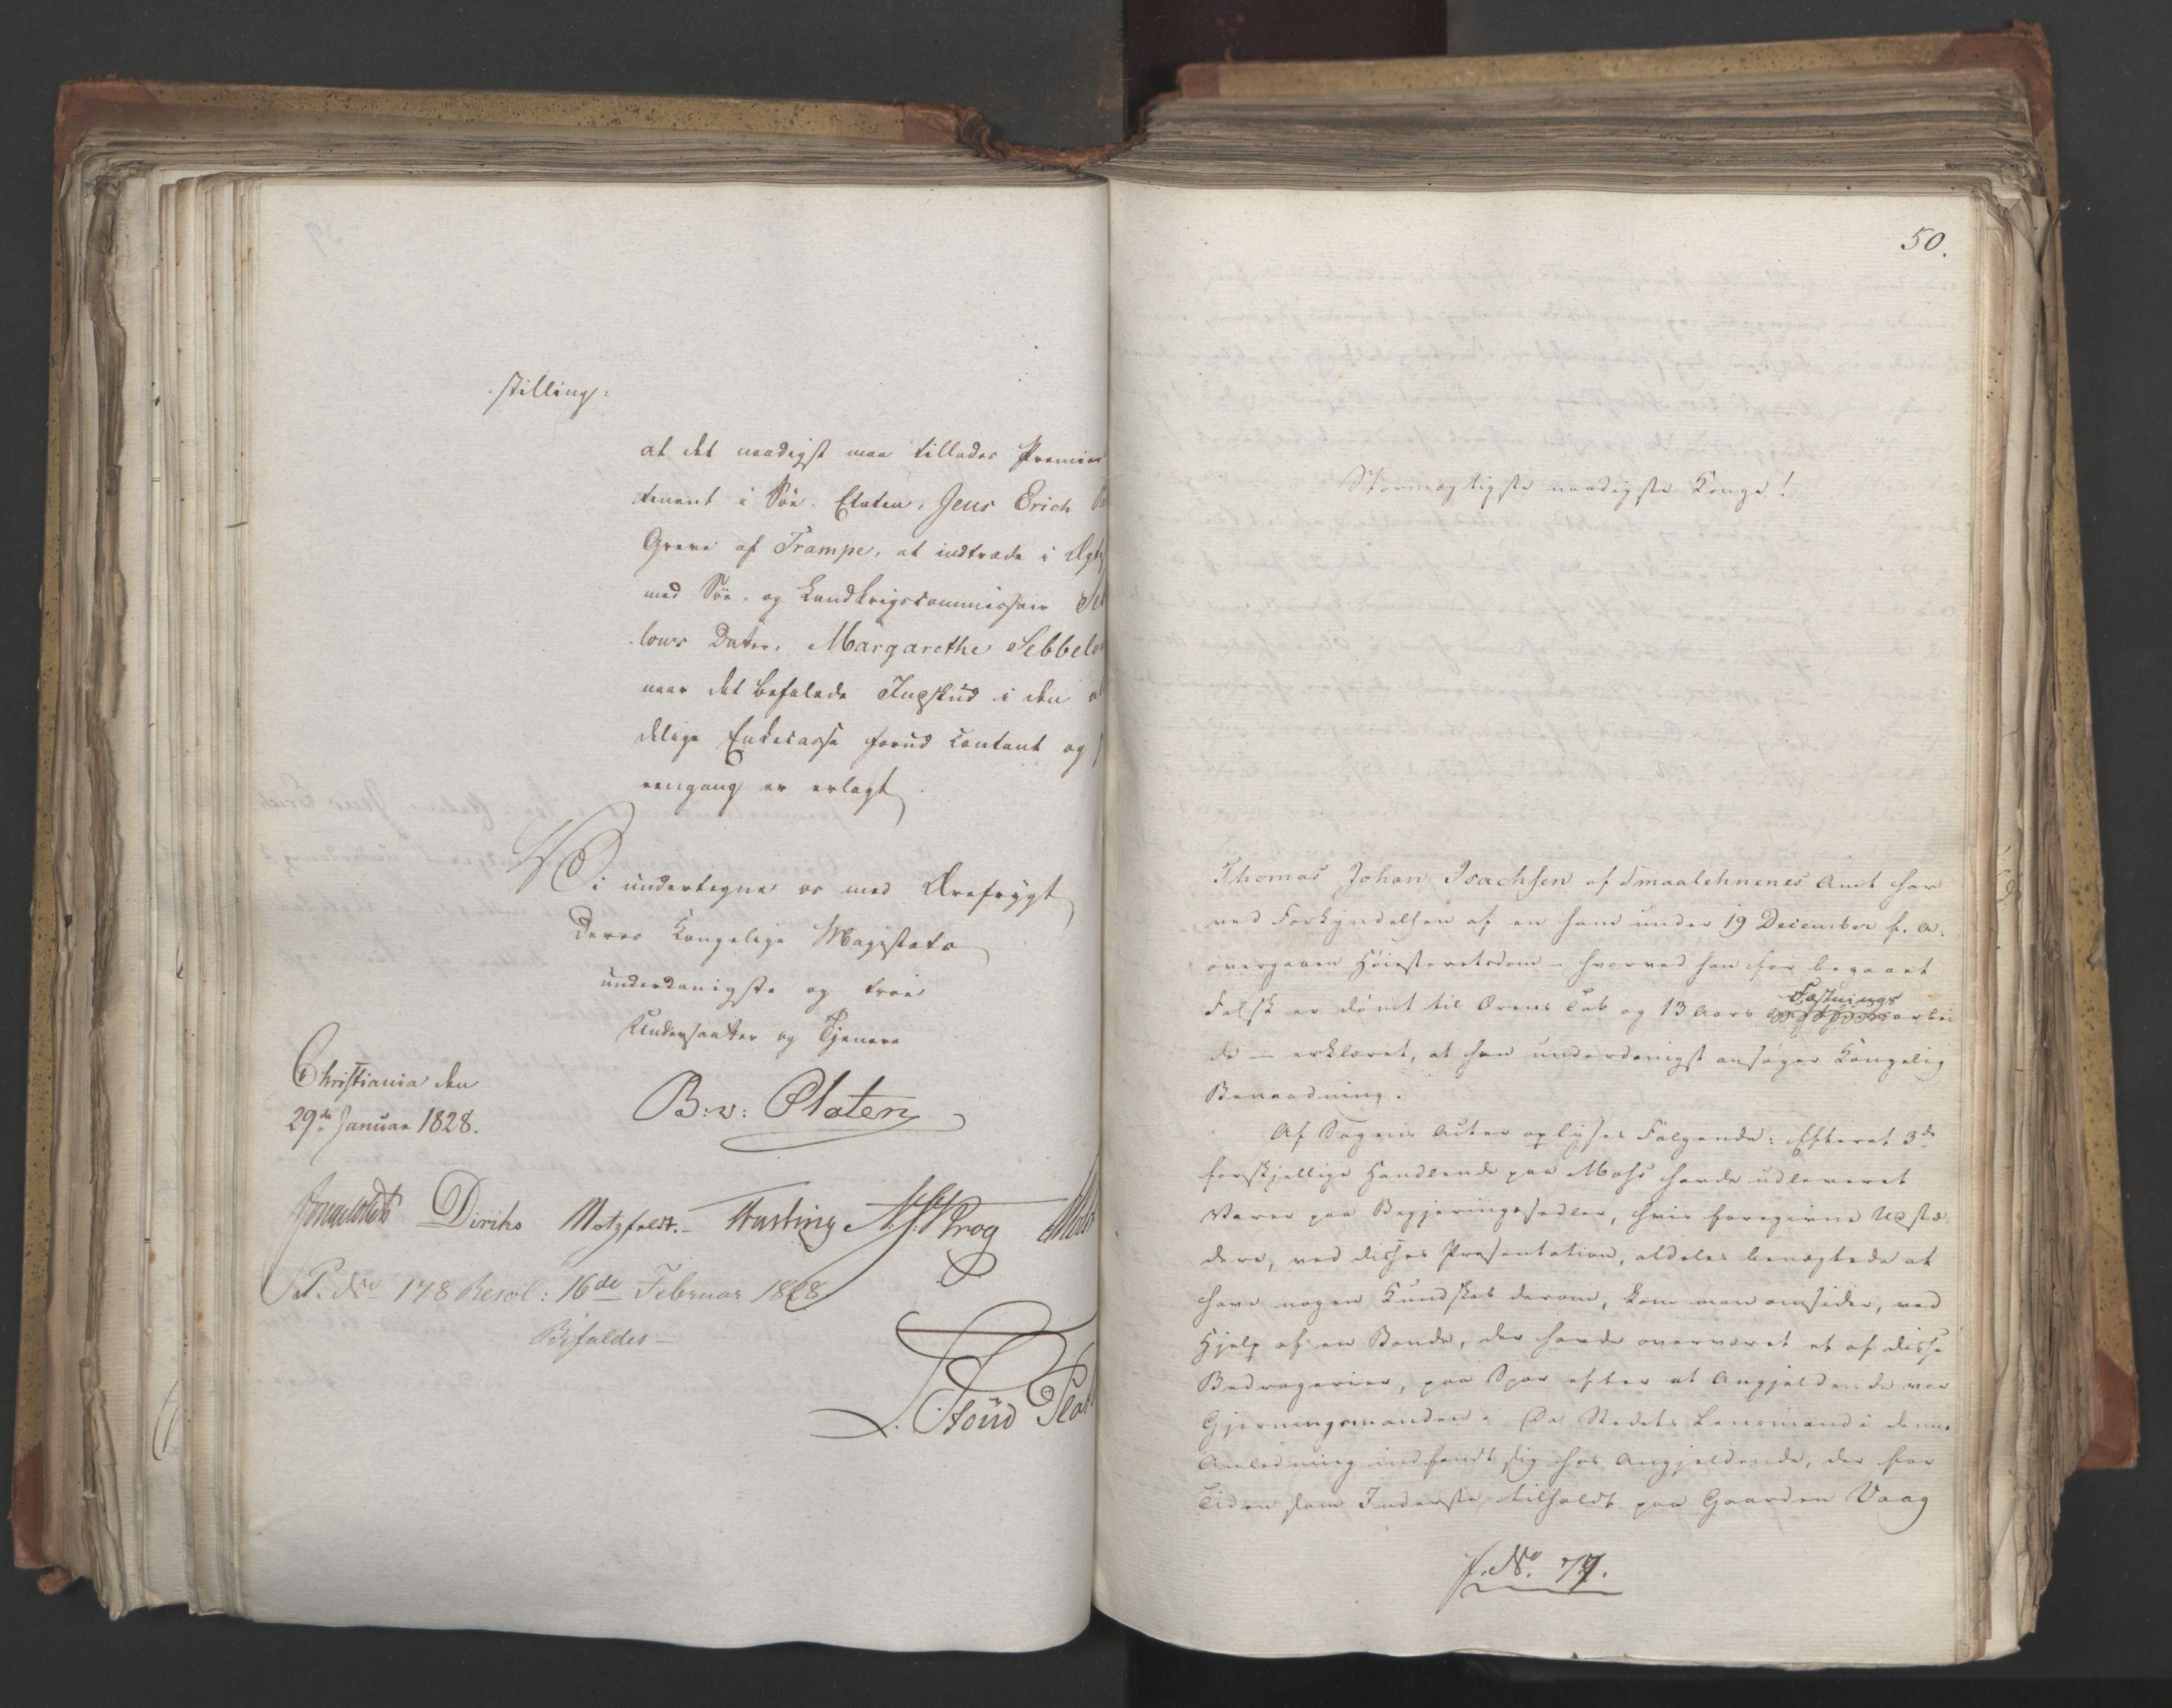 stilling:
at det naadigst maa tillades Premier
tenent i Söe-Etaten, Jens Erich
Greve af Trampe, at indtræde i Ægte
med Söe- og Landkrigscommissair
lows Datter, Margarethe Sebbelo
naar det befalede Indskud i den
delige Enkecasse forud contant og
eengang er erlagt.
Vi undertegne os med Ærefrygt
Deres Kongelige Majestæts
underdanigste og troe
Undersaatter og Tjenere
Christiania den
29de Januar 1828.
B: v: Platen
Diriks Motzfeldt.- Fasting Krog
P: No 178 Resol: 16de Februar 1828
Bifaldes-
50.
Stormægtigste naadigste Konge!
Thomas Johan Isachsen af Smaalehnenes Amt har
ved Forkyndelsen af en ham under 19 December f. A.
overgaaen Höiesteretsdom - hvorved han for begaaet
Falsk er dömt til Ærens Tab og 13 Aars Fæstnings arbei
de - erklæret, at han underdanigst ansöger Kongelig
Benaadning.
Af Sagens Acter oplyses Fölgende: Efterat 3de
forskjellige Handlende paa Moss havde udleveret
Varer paa Begjeringssedler, hvis foregivne Udstæ
dere, ved disses Præsentation, aldeles benægtede at
have nogen Kundskab derom, kom man omsider, ved
Hjelp af en Bonde, der havde overværet et af disse
Bedragerier, paa Spor efter at Angjeldende var
Gjerningsmanden. Da Stedets Lensmand i denne
Anledning indfandt sig hos Angjeldende, der for
Tiden som Inderste tilholdt paa Gaarden Vaag
No. 77.